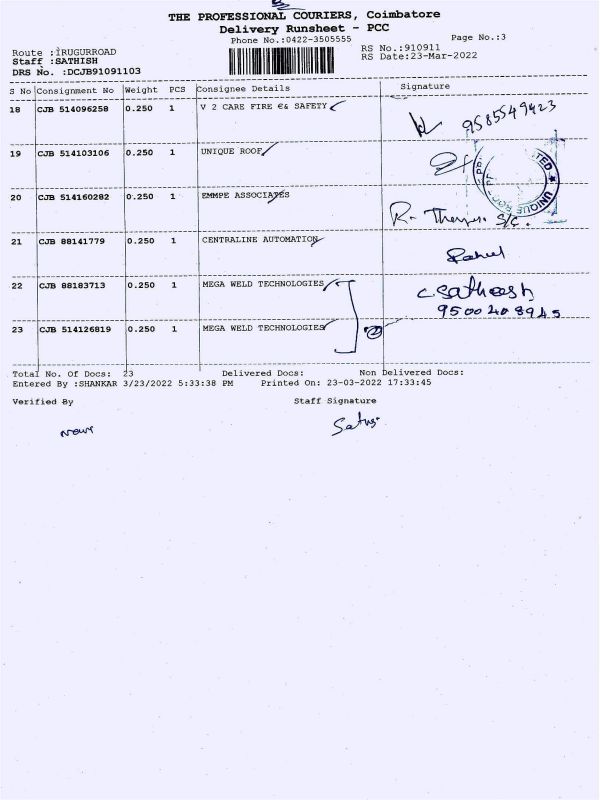 THE PROFESSIONAL COURIERS, Coimbatore
Delivery Runsheet - PCC
Phone No.:0422-3505555
Page No.:3
Route :IRUGURROAD
RS No.:910911
Staff :SATHISH
RS Date:23-Mar-2022
DRS No. :DCJB91091103
S No Consignment No Weight PCS Consignee Details Signature
18 CJB 514096258 0.250 1 V 2 CARE FIRE €& SAFETY
9585549423
19 CJB 514103106 0.250 1 UNIQUE ROOF
UNIQUE ROO
20 CJB 514160282 0.250 1 EMMPE ASSOCIATES
21 CJB 88141779 0.250 1 CENTRALINE AUTOMATION Rahul
22 CJB 88183713 0.250 1 MEGA WELD TECHNOLOGIES C. Satheesh
9500408945
23 CJB 514126819 0.250 1 MEGA WELD TECHNOLOGIES 2
Total No. Of Docs: 23 Delivered Docs: Non Delivered Docs:
Entered By :SHANKAR 3/23/2022 5:33:38 PM Printed On: 23-03-2022 17:33:45
Verified By Staff Signature